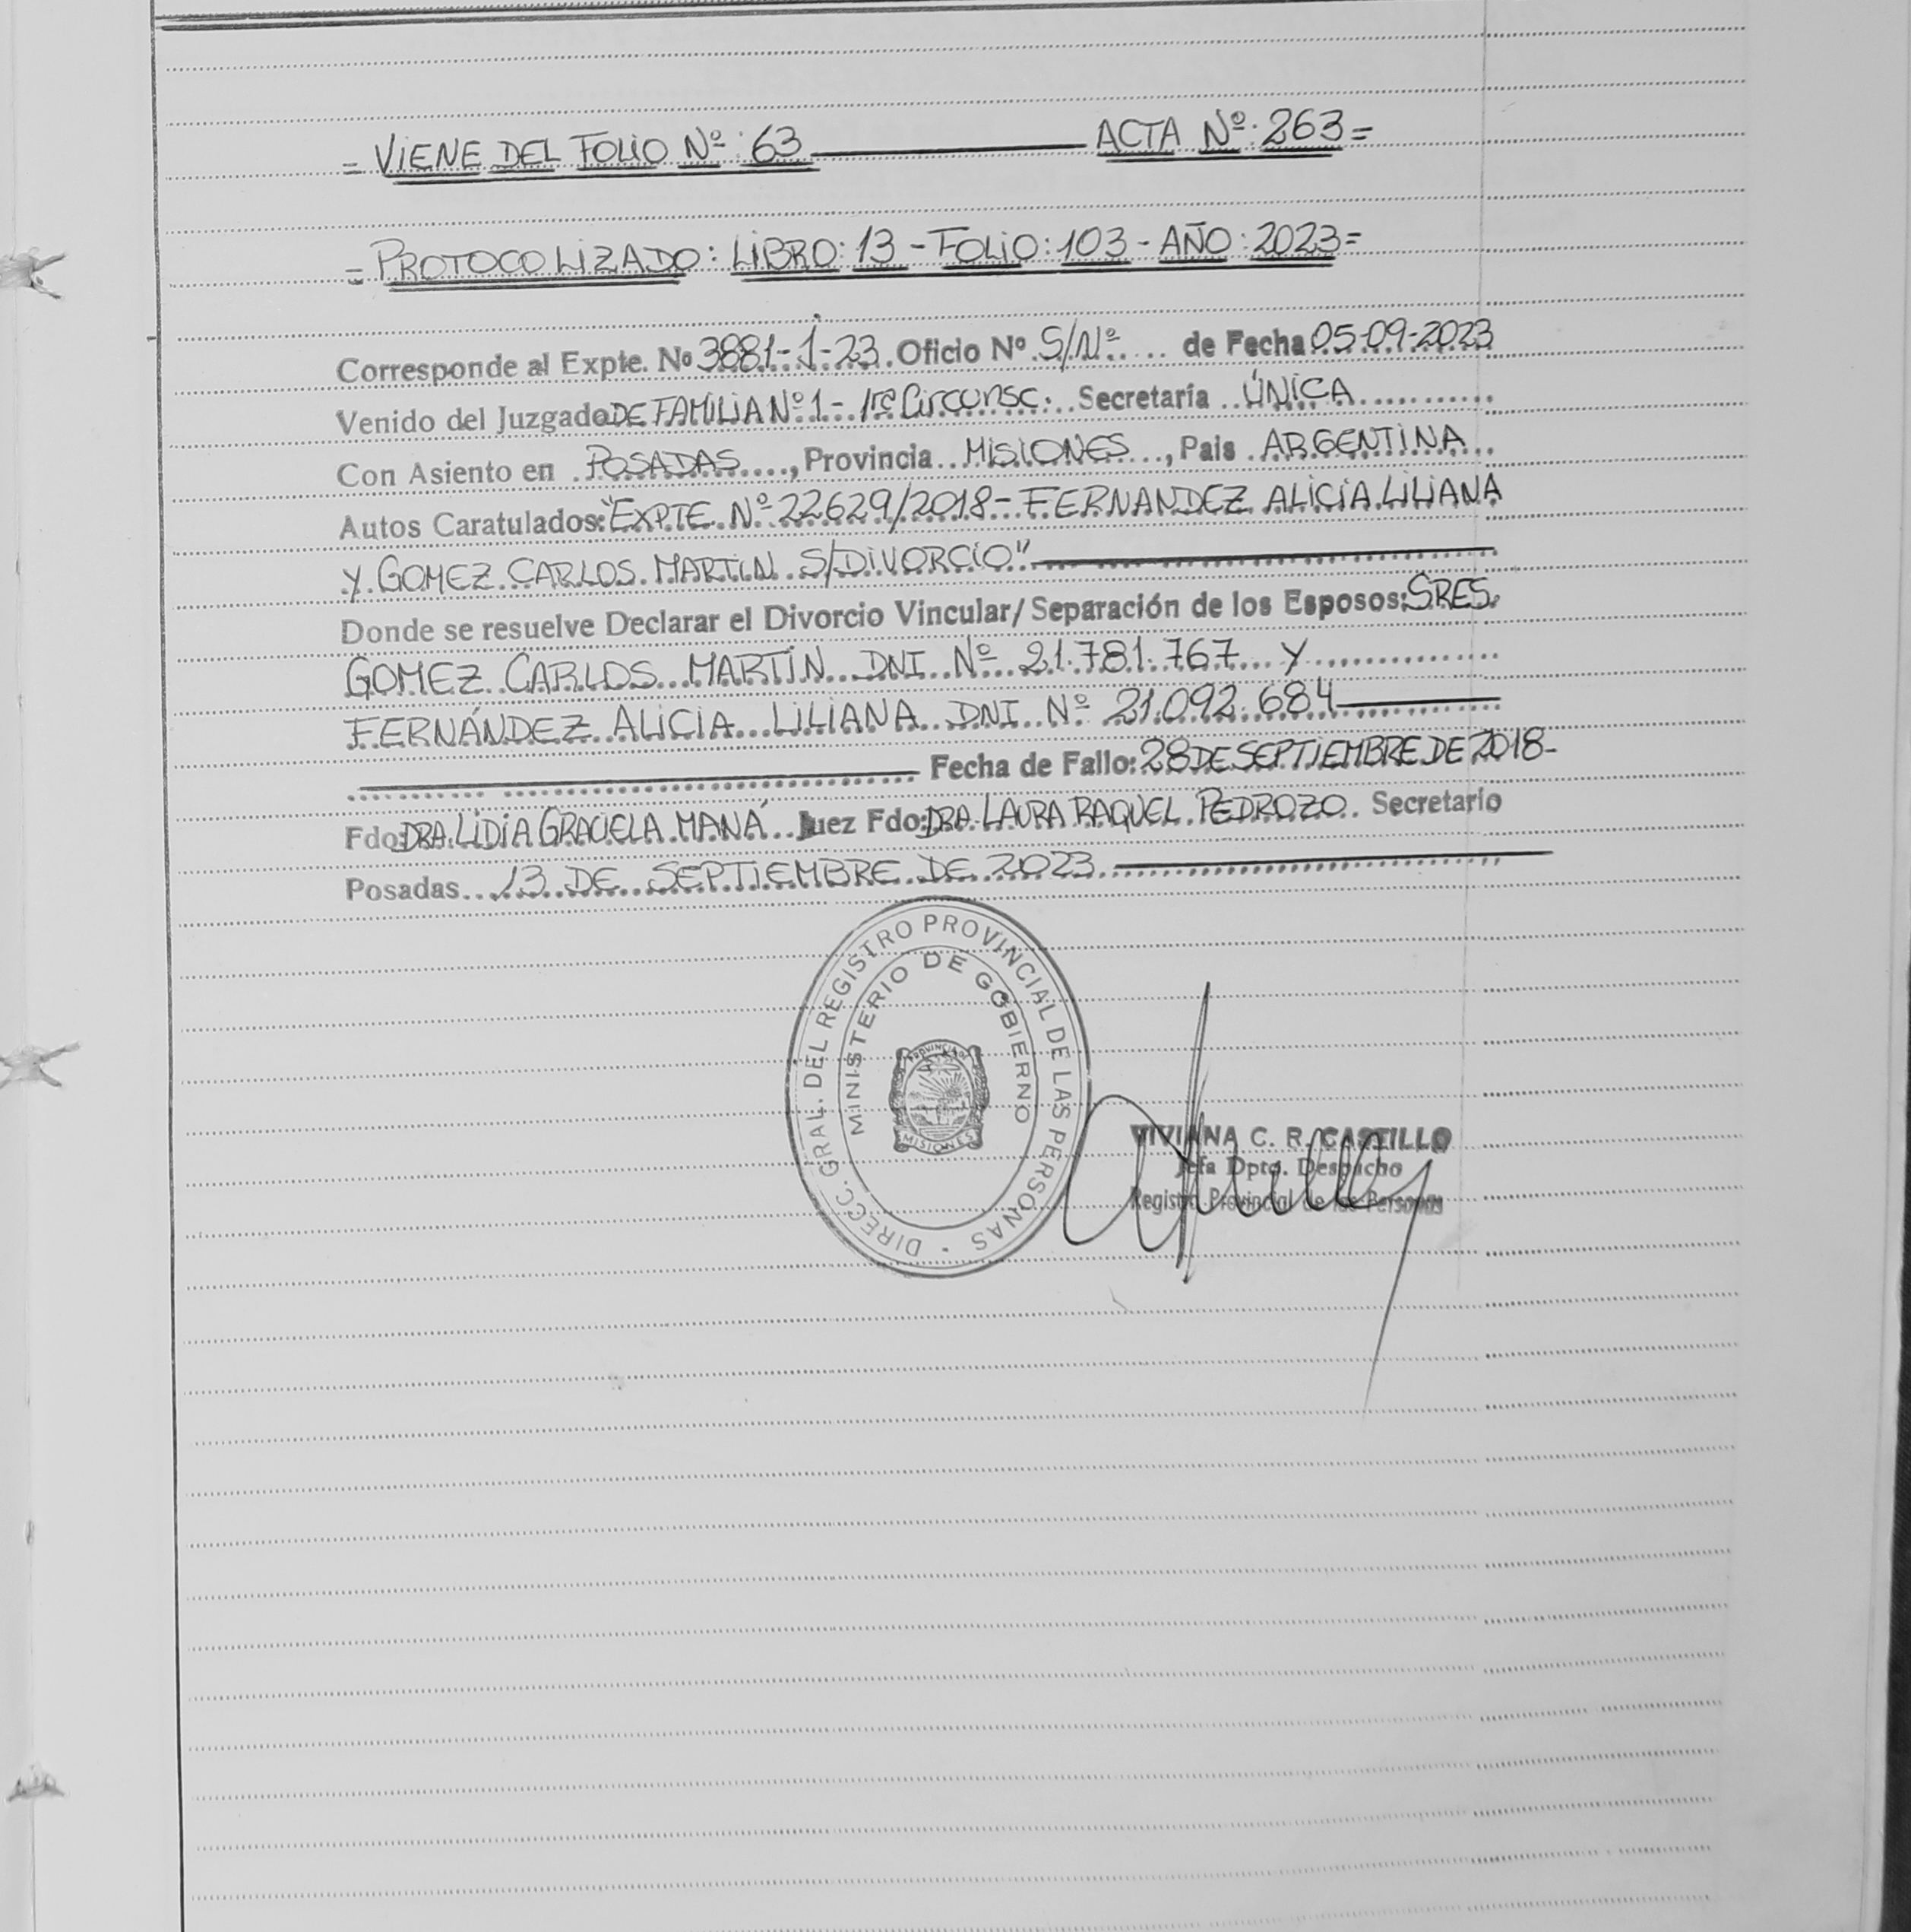 = VIENE DEL FOLIO Nº: 63 ——— ACTA Nº: 263 =
= PROTOCOLIZADO: LIBRO: 13 - FOLIO: 103 - AÑO: 2023 =
Corresponde al Expte. Nº 3881-1-23. Oficio Nº S/Nº.... de Fecha 05-09-2023
Venido del Juzgado DE FAMILIA Nº 1 - 1ra Circunsc. Secretaría ÚNICA
Con Asiento en POSADAS...., Provincia MISIONES, Pais ARGENTINA
Autos Caratulados: "EXPTE. Nº 22629/2018 - FERNANDEZ ALICIA LILIANA
Y GOMEZ CARLOS MARTIN S/DIVORCIO"
Donde se resuelve Declarar el Divorcio Vincular/ Separación de los Esposos: SRES.
GOMEZ CARLOS MARTIN DNI Nº 21.781.767 Y
FERNÁNDEZ ALICIA LILIANA DNI Nº 21.092.684
Fecha de Fallo: 28 DE SEPTIEMBRE DE 2018-
Fdo: DRA. LIDIA GRACIELA MANÁ Juez Fdo: DRA. LAURA RAQUEL PEDROZO. Secretario
Posadas 13 DE SEPTIEMBRE DE 2023
DIRECC. GRAL. DEL REGISTRO PROVINCIAL DE LAS PERSONAS
MINISTERIO DE GOBIERNO
PROVINCIA DE
MISIONES
VIVIANA C. R. CASTILLO
Jefa Dpto. Despacho
Registro Provincial de las Personas